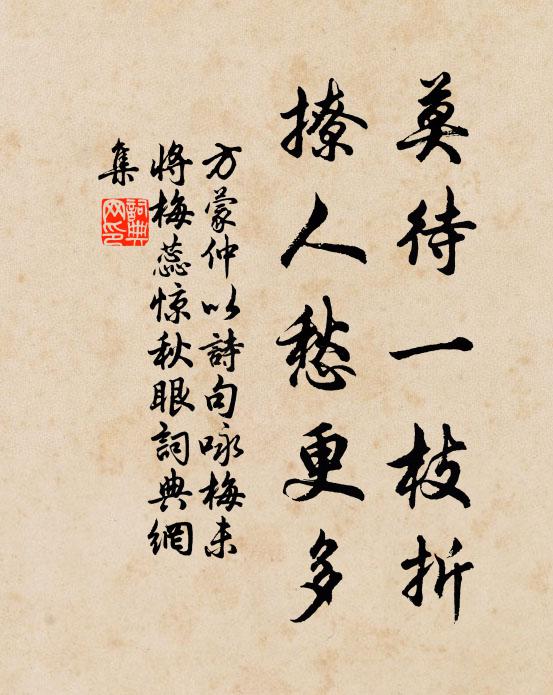 莫待一枝折
撩人愁更多
方蒙仲以詩句咏梅未
將梅蕊惊秋眼詞典網
集
詞典
网印